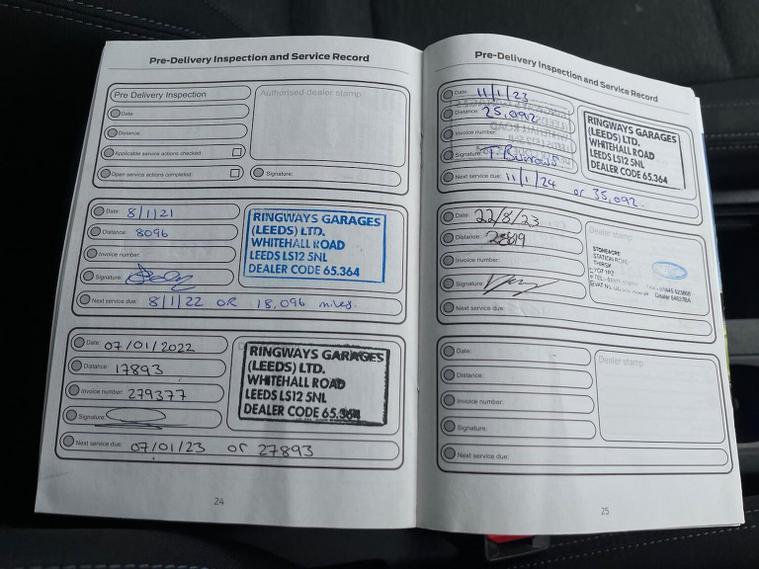 Pre-Delivery Inspection and Service Record
Pre Delivery Inspection
Date
Distance
Applicable service actions checked
Open service actions completed
Authorised dealer stamp
Signature:
Date: 8/1/21
Distance: 8096
Invoice number:
Signature:
Next service due: 8/1/22 OR 18,096 miles.
RINGWAYS GARAGES
(LEEDS) LTD.
WHITEHALL ROAD
LEEDS LS12 5NL
DEALER CODE 65.364
Date: 07/01/2022
Distance: 17893
Invoice number: 279377
Signature:
Next service due: 07/01/23 or 27893
RINGWAYS GARAGES
(LEEDS) LTD.
WHITEHALL ROAD
LEEDS LS12 5NL
DEALER CODE 65.364
24
Pre-Delivery Inspection and Service Record
Date: 11/1/23
Distance: 25,092
Invoice number:
Signature: T. Burrows
Next service due: 11/1/24 or 35,092.
RINGWAYS GARAGES
(LEEDS) LTD.
WHITEHALL ROAD
LEEDS LS12 5NL
DEALER CODE 65.364
Date: 22/8/23
Distance:
Invoice number:
Signature:
Next service due:
Dealer stamp
STONEACRE
THIRSK
Date:
Distance:
Invoice number:
Signature:
Next service due:
Dealer stamp
25